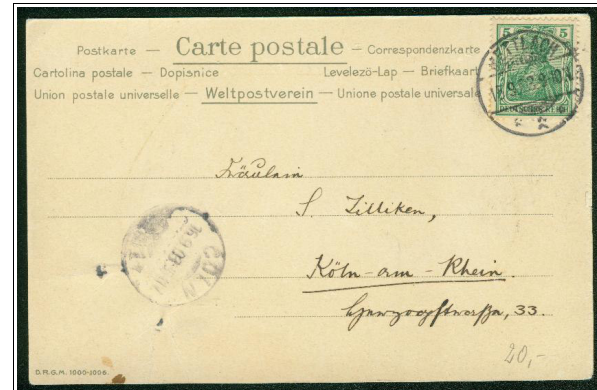 Postkarte — Carte postale — Correspondenzkarte
Cartolina postale — Dopisnice Levelező-Lap — Briefkaart
Union postale universelle — Weltpostverein — Unione postale universale
5 5
DEUTSCHES REICH
Fräulein
S. Zilliken,
Köln-am-Rhein.
Herzogstrasse, 33.
CÖLN
20,-
D.R.G.M. 1006-1006.